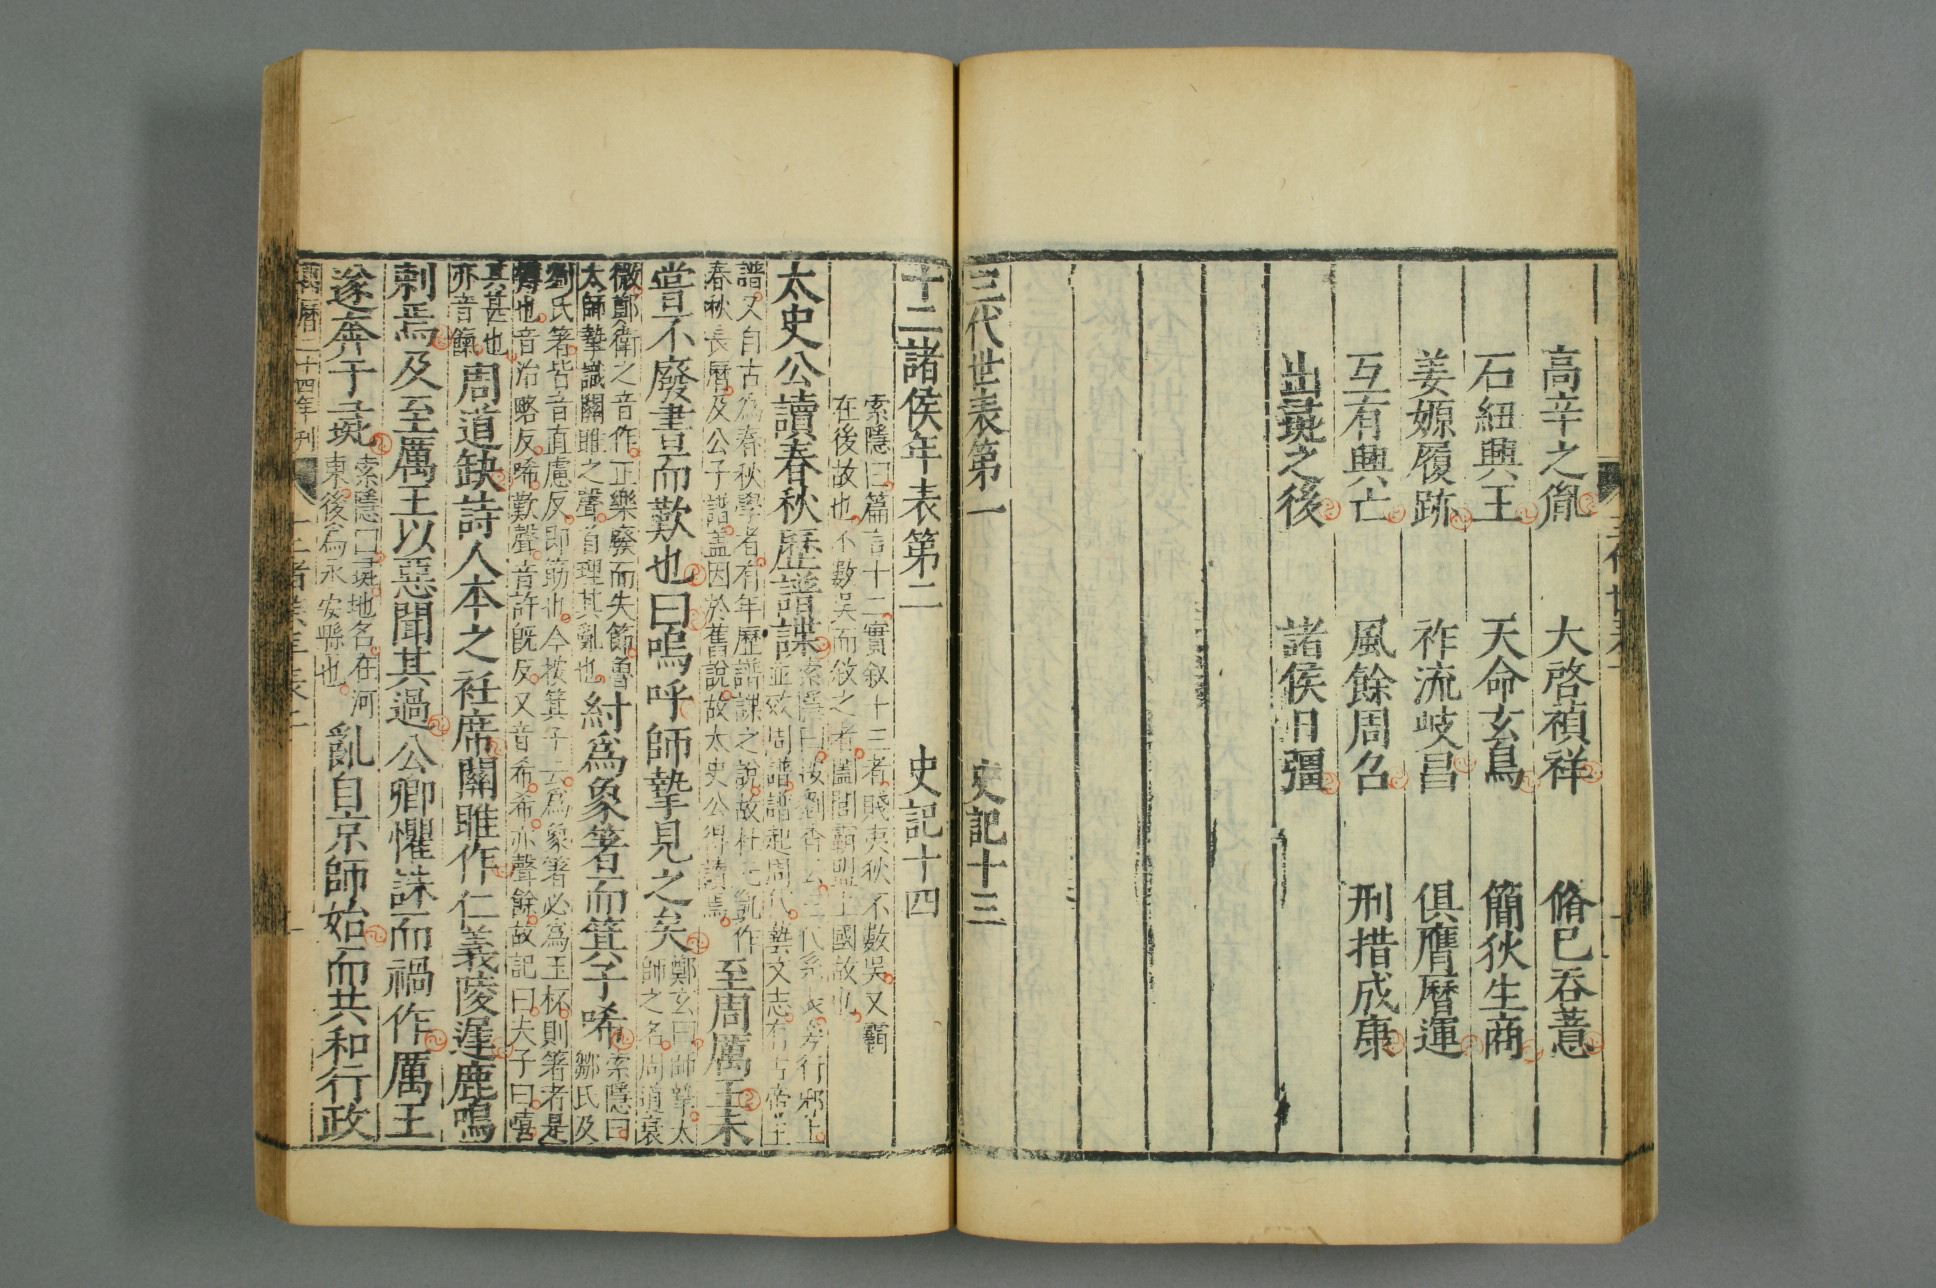 三代世表一
高辛之胤　大啓禎祥　脩巳吞薏
石紐興王　天命玄鳥　簡狄生商
姜嫄履跡　祚流岐昌　俱膺曆運
互有興亡　風餘周召　刑措成康
出彘之後　諸侯日彊
三代世表第一　史記十三
十二諸侯年表第二　史記十四
索隱曰篇言十二實叙十三者賤夷狄不數吳又霸
在後故也不數吳而敘之者闔閭霸盟上國故也
太史公讀春秋歷譜諜索隱曰按劉杳云三代系表旁行邪上並效周譜譜起周代藝文志有古帝王
譜又自古為春秋學者有年歷譜諜之說故杜元凱作春秋長曆及公子譜蓋因於舊說故太史公得讀焉至周厲王未
嘗不廢書而歎也曰嗚呼師摯見之矣鄭玄曰師摯太師之名周道衰
微鄭衛之音作正樂廢而失節魯太師摯識關雎之聲首理其亂也紂爲象箸而箕子唏索隱曰鄒氏及
劉氏箸皆音直慮反即筯也今按箕子云爲象箸必爲玉杯則箸者是
樽也音治略反唏歎聲音許旣反又音希希亦聲餘故記曰夫子曰嘻
其甚也亦音餼周道缺詩人本之衽席關雎作仁義陵遲鹿鳴
刺焉及至厲王以惡聞其過公卿懼誅而禍作厲王
遂奔于彘索隱曰彘地名在河東後爲永安縣也亂自京師始而共和行政
曆二十四年刊　十二諸侯年表二